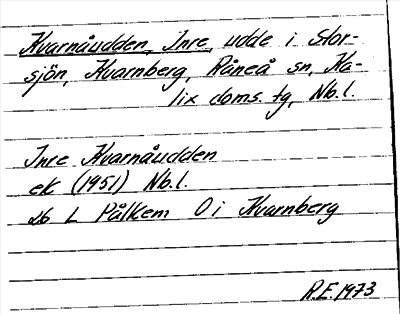 Kvarnåudden, Inre, udde i Stor-
sjön, Kvarnberg, Råneå sn, Ka-
lix doms. tg, Nb.l.
Inre Kvarnåudden
ek (1951) Nb.l.
26 L Pålkem O i Kvarnberg
R.E. 1973